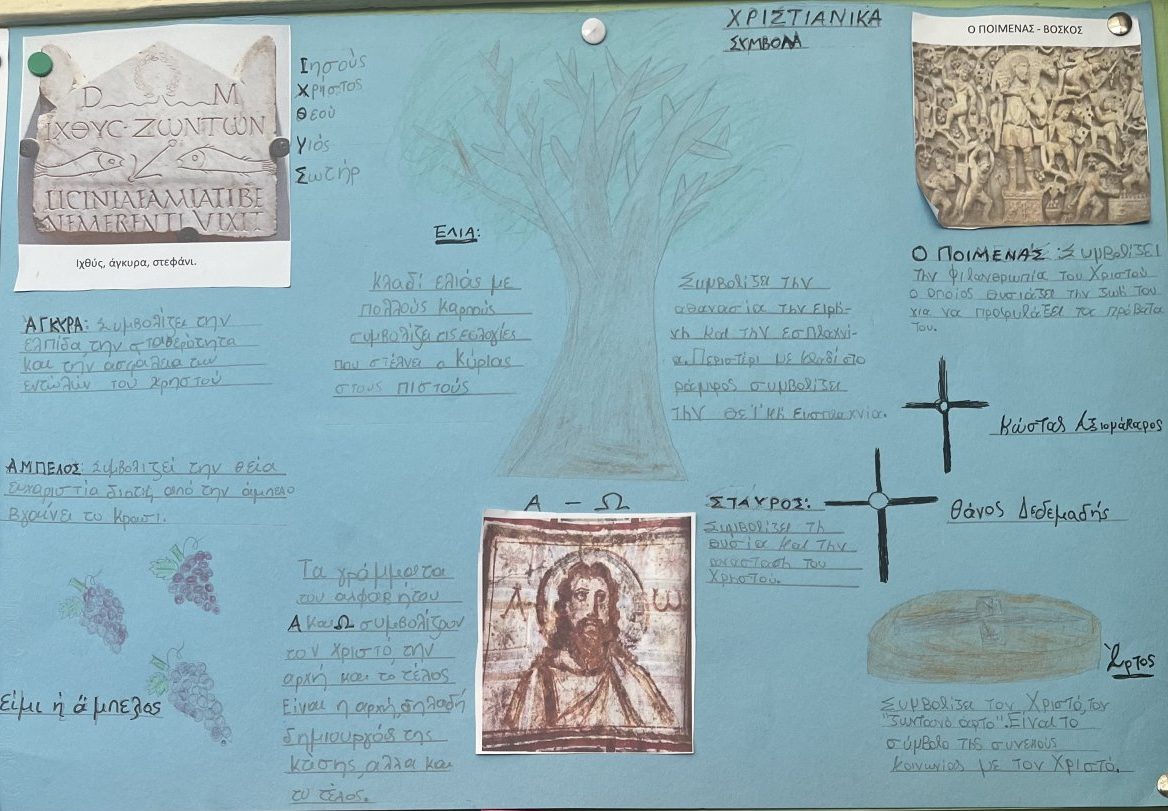 ΧΡΙΣΤΙΑΝΙΚΑ
ΣΥΜΒΟΛΑ
D M
ΙΧΘΥC ΖΩΝΤΩΝ
LICINIAEAMIATIBE
NEMERENTI VIXIT
Ιχθύς, άγκυρα, στεφάνι.
Ιησούς
Χριστος
Θεού
Υιός
Σωτήρ
ΆΓΚΥΡΑ: Συμβολίζει την
ελπίδα την σταθερότητα
και την ασφάλεια των
εντολών του Χρηστού
ΑΜΠΕΛΟΣ: Συμβολιζεί την θεία
ευχαριστία διότι από την άμπελο
βγαίνει το κρασι.
είμι ἡ ἄμπελος
ΕΛΙΑ:
Κλαδί ελιάς με
πολλούς καρπούς
συμβολίζει τις ευλογίες
που στέλνει ο Κύριος
στους πιστούς
Συμβολίζει την
αθανασία την ειρή-
νη και την ευσπλαχνί-
α. Περιστέρι με κλαδί στο
ράμφος συμβολίζει
την θεϊκή ευσπλαχνία.
Α - Ω
Τα γράμματα
του αλφαβήτου
Α και Ω συμβολίζουν
τον Χριστό, την
αρχή και το τέλος
Είναι η αρχή, δηλαδή
δημιουργός της
κτίσης, αλλα και
το τέλος.
Α ω
Ο ΠΟΙΜΕΝΑΣ - ΒΟΣΚΟΣ
Ο ΠΟΙΜΕΝΑΣ: Συμβολίζει
την φιλανθρωπία του Χριστού
ο οποίος θυσιάζει την ζωή του
για να προφυλάξει τα πρόβατα
του.
Κώστας Αξιομάκαρος
ΣΤΑΥΡΟΣ:
Συμβολίζει τη
θυσία και την
ανάσταση του
Χρηστού.
Θάνος Δεδεμαδής
Άρτος
Συμβολίζει τον Χριστό, τον
"ζωντανό άρτο". Είναι το
σύμβολο της συνεχούς
κοινωνίας με τον Χριστό.